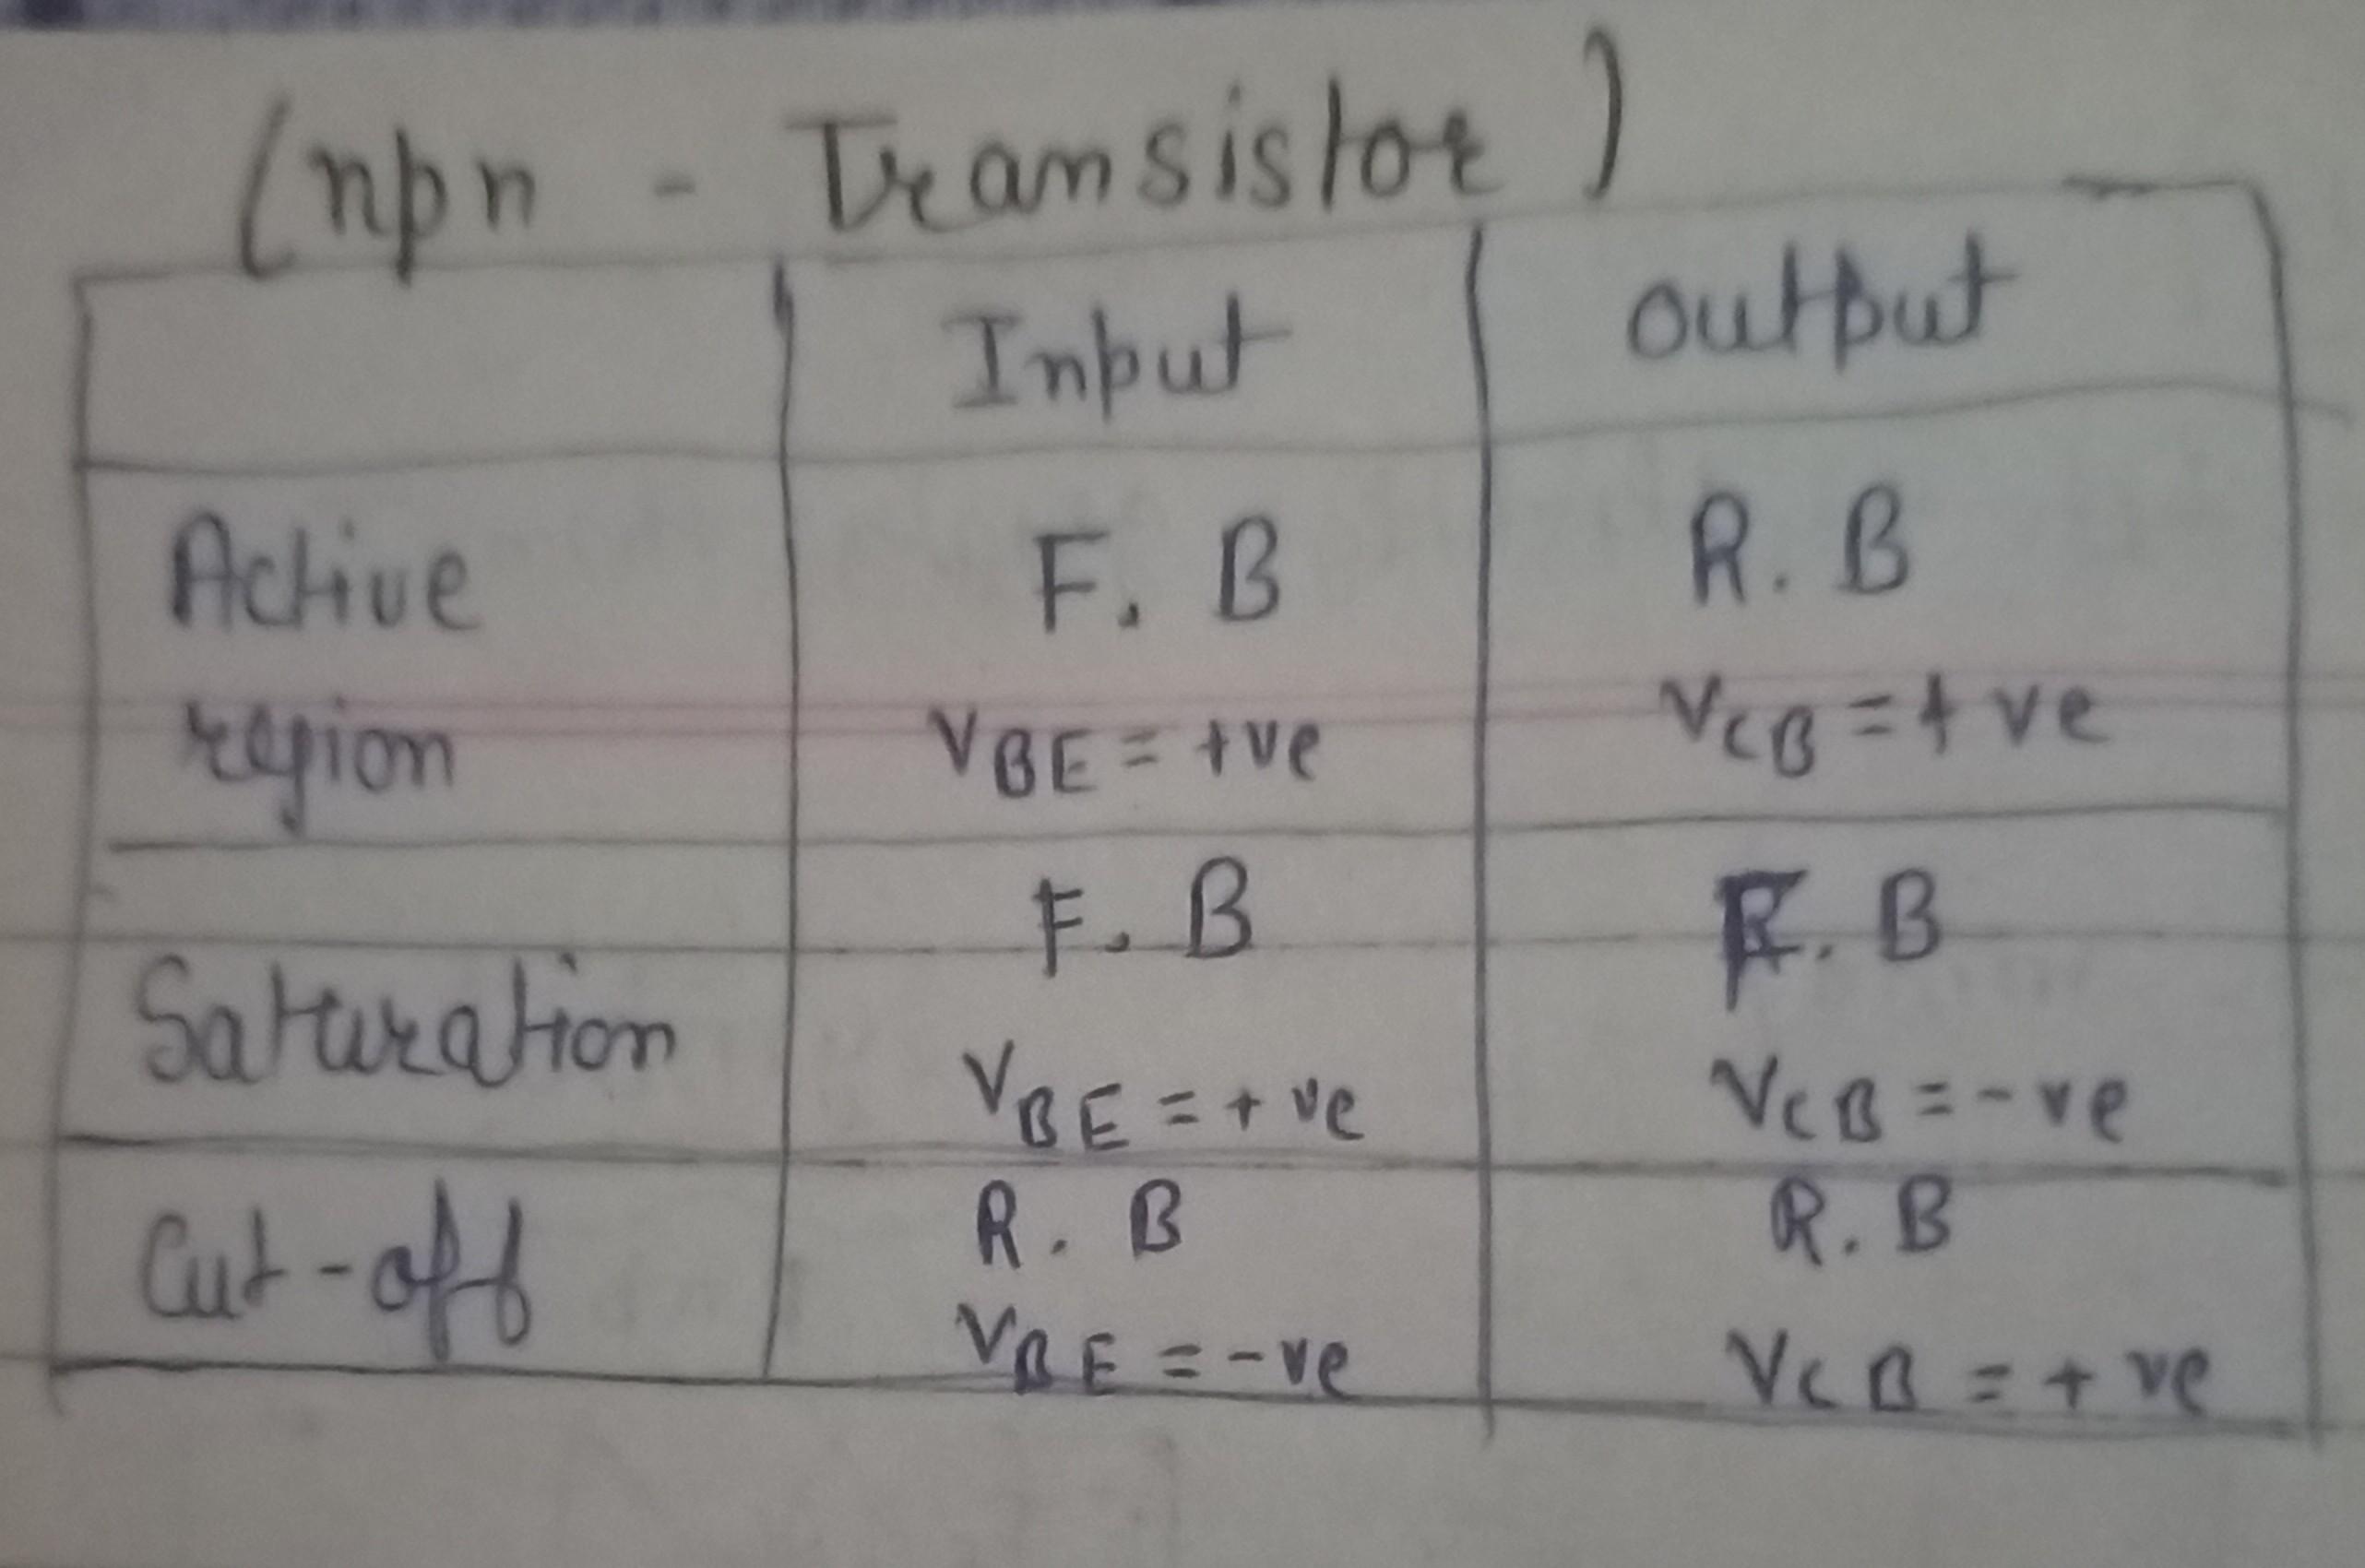 (npn - Transistor)
Input output
Active region F. B R. B
VBE = +ve VCB = + ve
Saturation F. B F. B
VBE = + ve VCB = - ve
Cut-off R. B R. B
VBE = -ve VCB = + ve